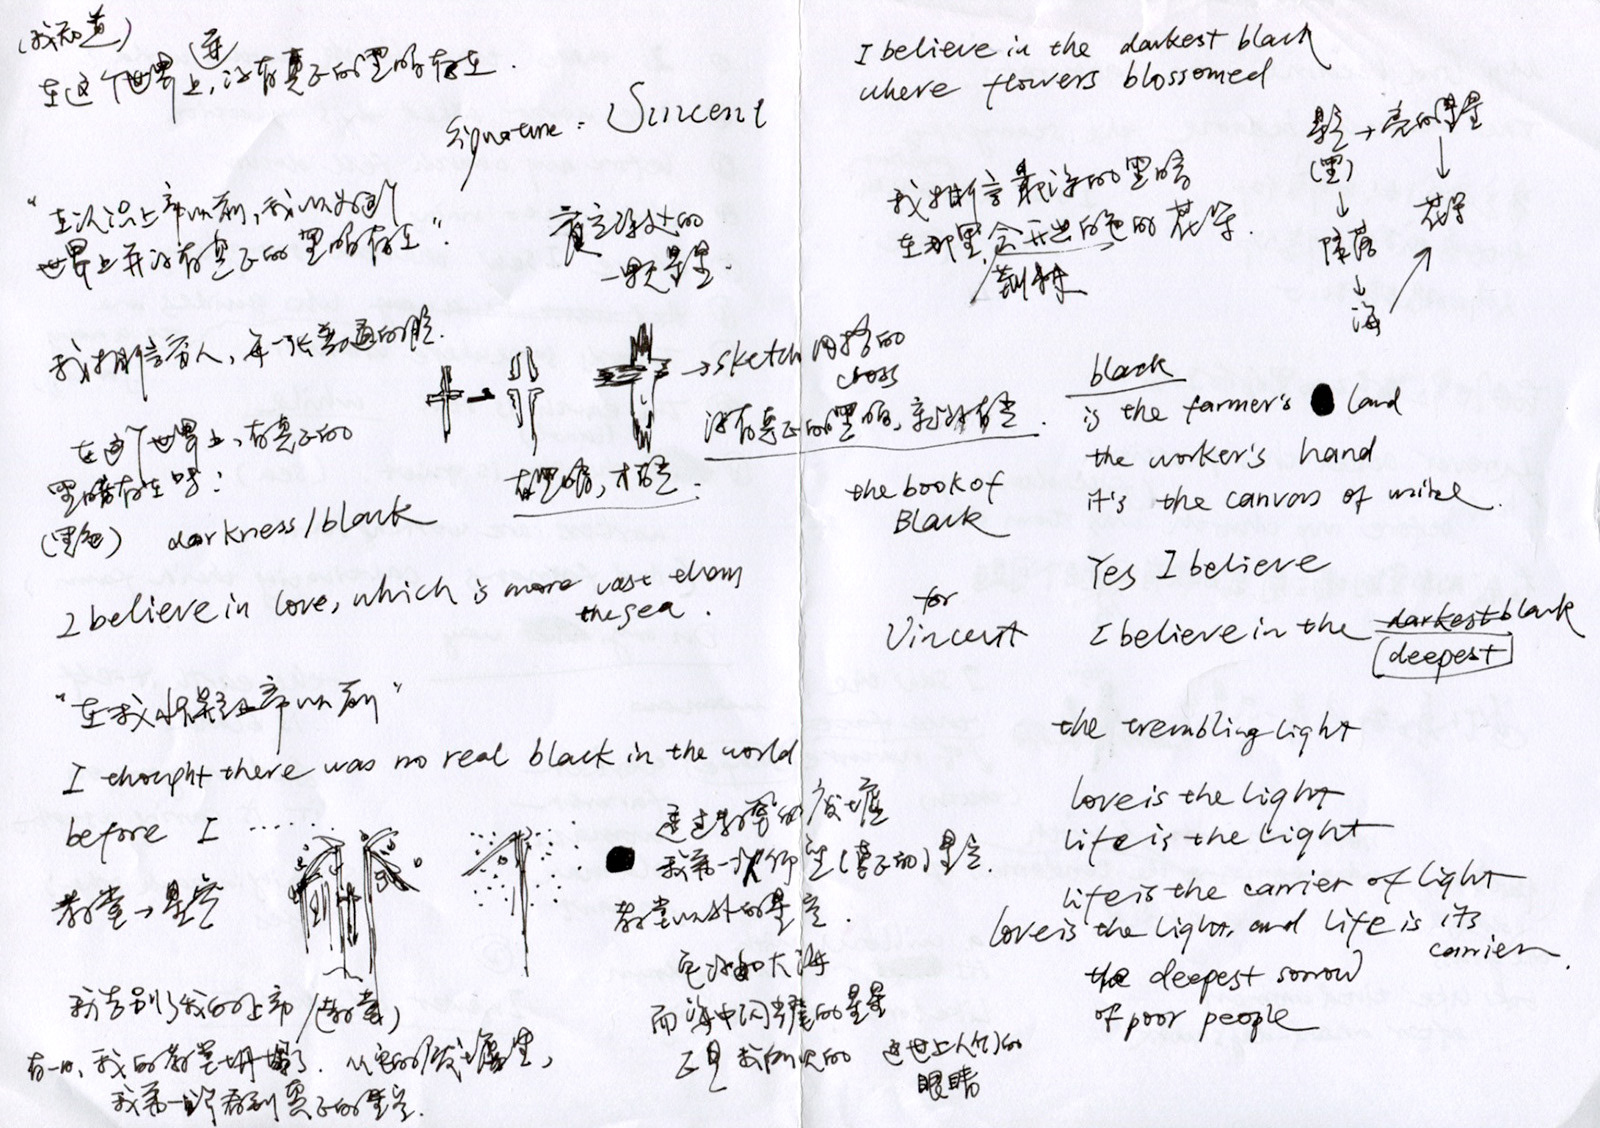 (我知道)
在这个世界上,并没有真正的黑暗存在.
signature:
"在认识上帝以前,我以为这个
世界上并没有真正的黑暗存在".
夜空深处的
一颗星星.
我相信穷人,每一张普通的脸.
→ sketch 网格的
cross
没有真正的黑暗,就没有光.
在这个世界上,有真正的
黑暗存在吗?
(黑色) darkness/black
在黑暗,才有光.
I believe in love, which is more vast than
the sea.
"在我怀疑上帝以前"
I thought there was no real black in the world
before I ......
教堂→星空
我告别了我的上帝/(教堂)
有一日,我的教堂坍塌了.从它的废墟里,
我第一次看到真正的星空.
透过教堂的废墟
我第一次仰望(真正的)星空.
教堂以外的星空.
它深如大海
而海中闪耀的星星
正是我所见的 这世上人们的
眼睛
I believe in the darkest black
where flowers blossomed
我相信最深的黑暗
在那里,会开出白色的花朵.
星空→亮的星星
(黑)
↓
坠落
↓
海
↓
花朵
the book of
Black
for
Vincent
black
is the farmer's land
the worker's hand
it's the canvas of mine.
Yes I believe
I believe in the darkest black
deepest
the trembling light
love is the light
life is the light
life is the carrier of light
love is the light, and life is its
carrier.
the deepest sorrow
of poor people